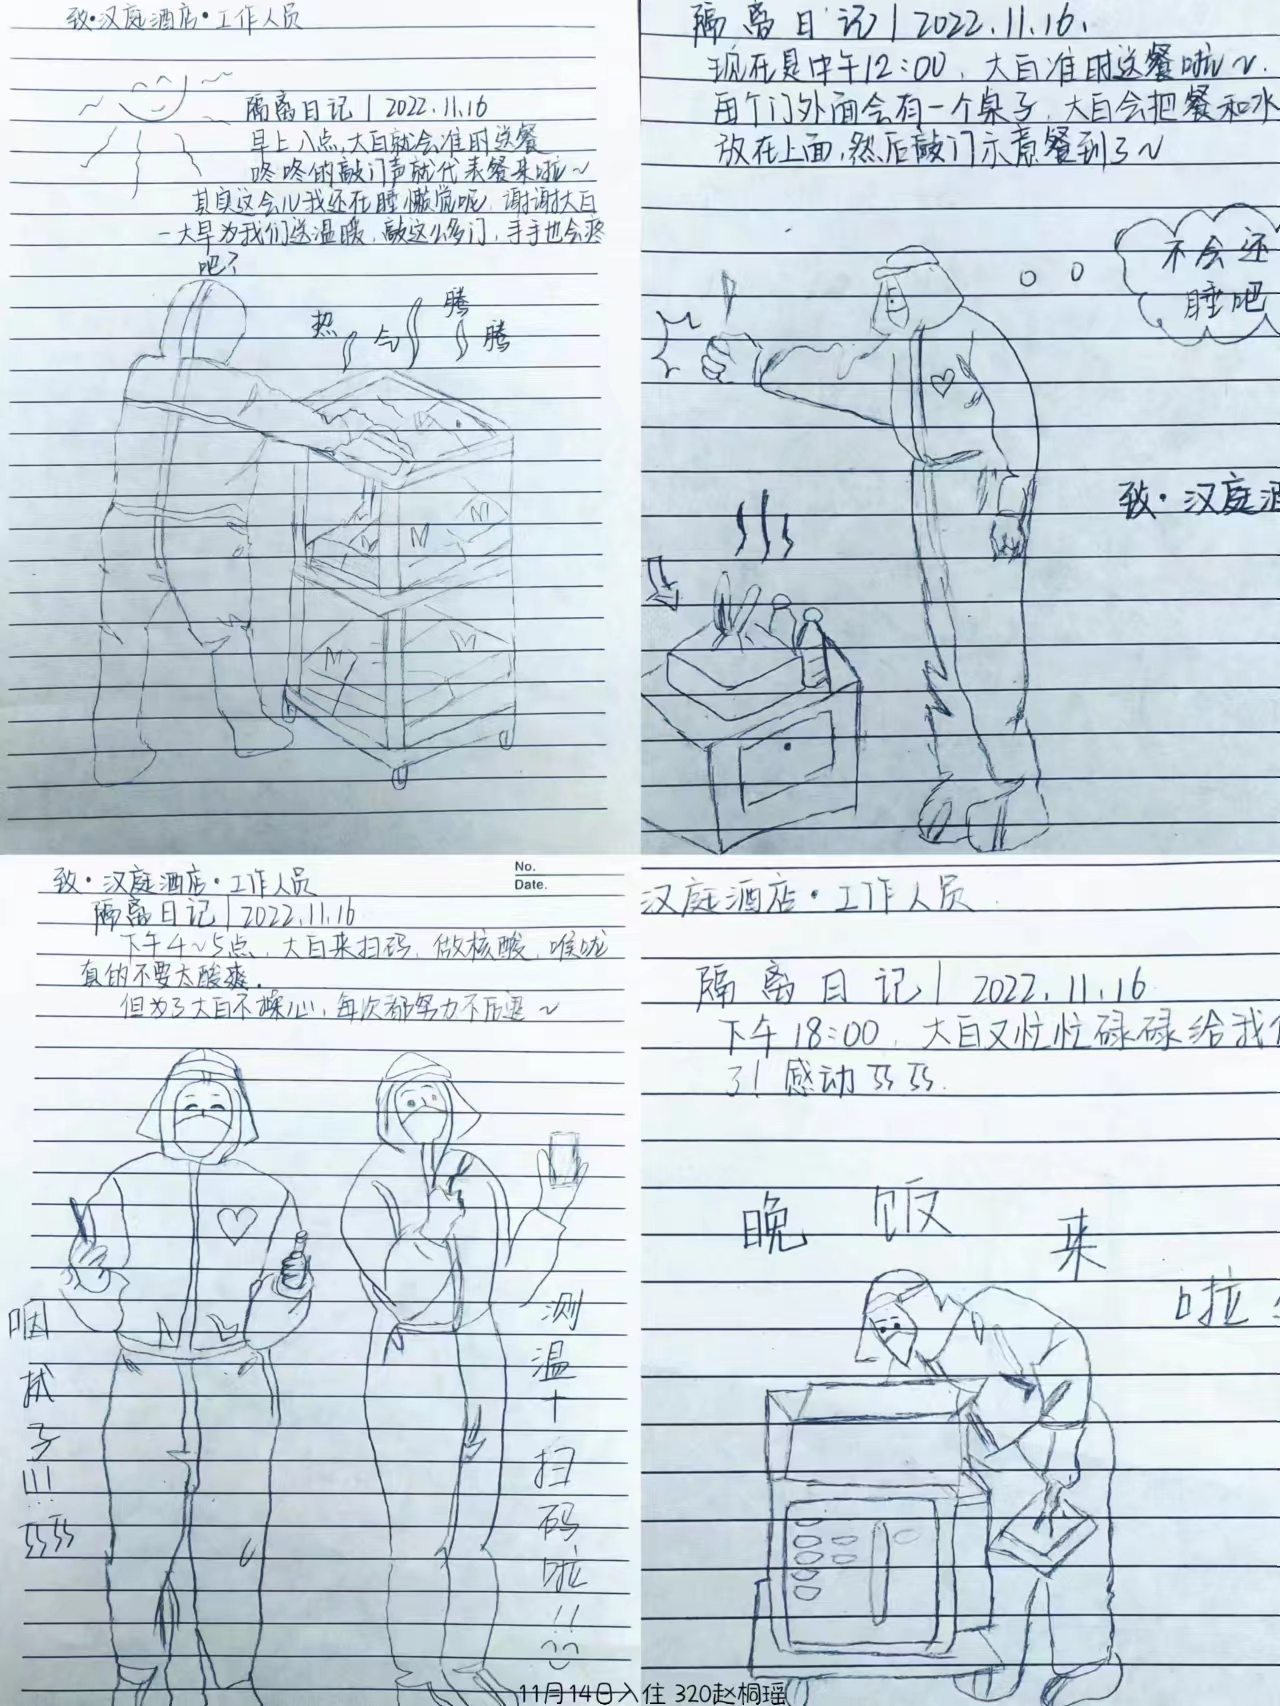 致·汉庭酒店·工作人员
隔离日记 | 2022.11.16
早上八点,大白就会准时送餐
咚咚的敲门声就代表餐来啦~
其实这会儿我还在睡懒觉呢,谢谢大白
一大早为我们送温暖,敲这么多门,手手也会疼
吧?
热 气 腾 腾
M
M
M
M
隔离日记 | 2022.11.16.
现在是中午12:00,大白准时送餐啦~.
每个门外面会有一个桌子,大白会把餐和水
放在上面,然后敲门示意餐到了~
不会还
睡吧
致·汉庭酒
致·汉庭酒店·工作人员
No.
Date.
隔离日记 | 2022.11.16
下午4~5点,大白来扫码,做核酸,喉咙
真的不要太酸爽.
但为了大白不操心,每次都努力不后退~
咽拭子!!!
测温+扫码啦!!
汉庭酒店·工作人员
隔离日记 | 2022.11.16
下午18:00,大白又忙忙碌碌给我们
了!感动
晚饭来啦
11月14日入住 320赵桐瑶